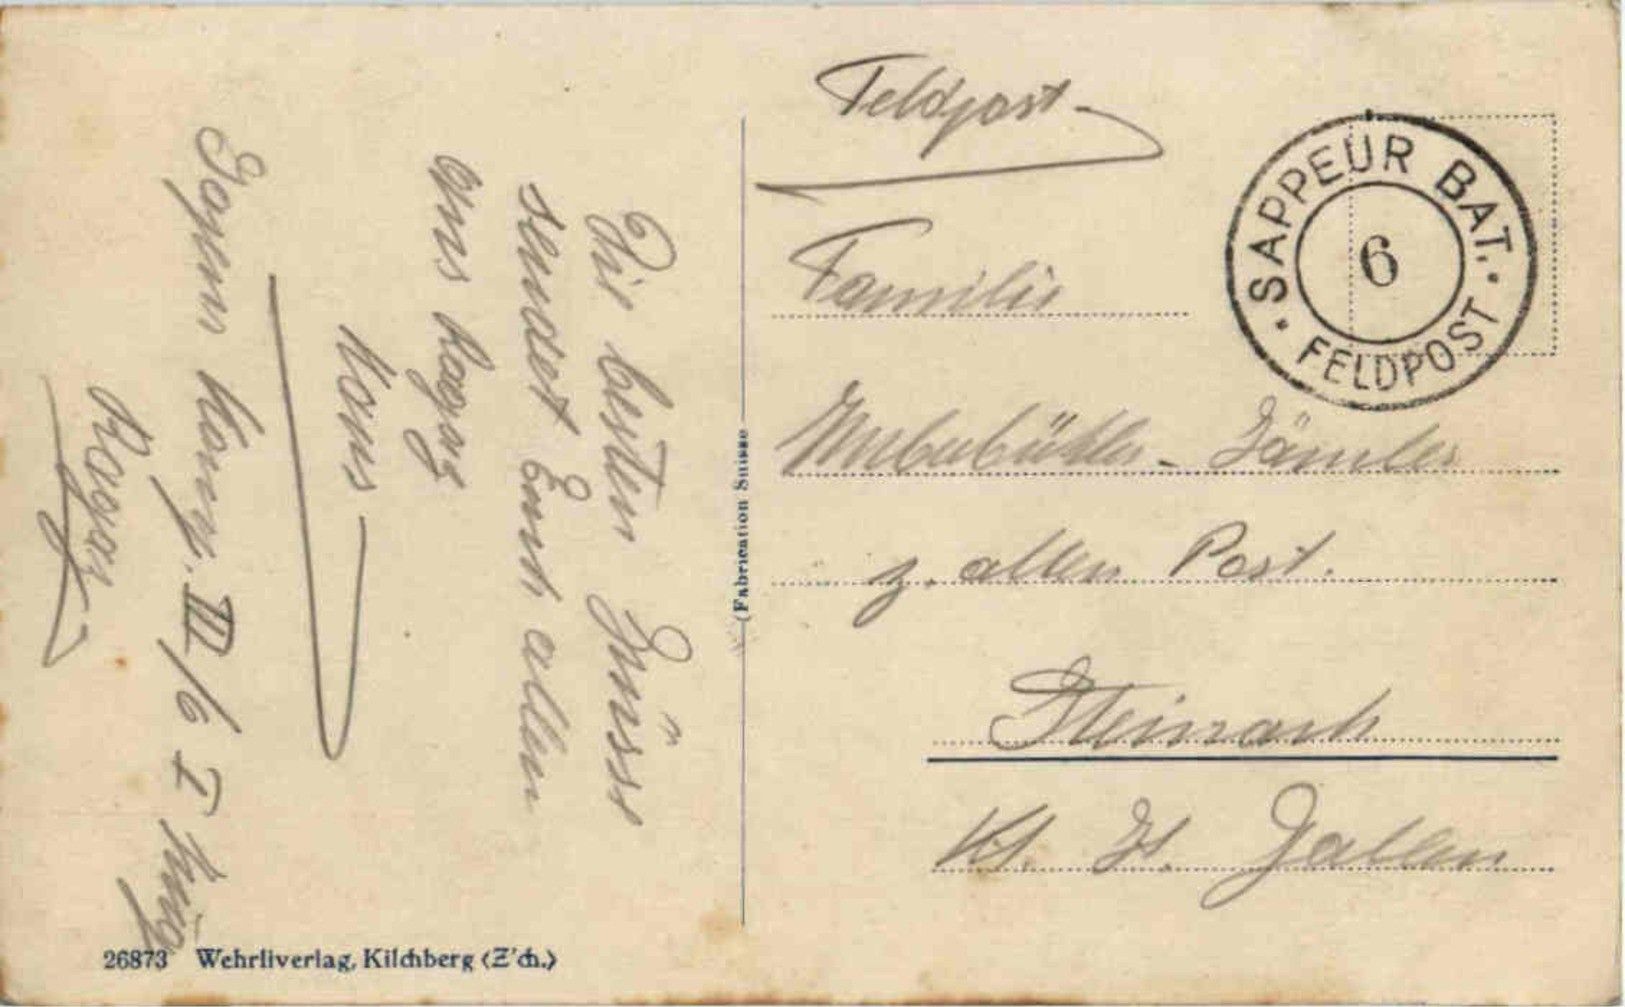 Die besten Grüsse
sendet Euch allen
aus Ragaz
Hans
Komp. III/6 I Zug
Ragaz
Feldpost
Familie
z. alten Post.
Steinach
Kt. St. Gallen
SAPPEUR BAT.
6
FELDPOST
(Fabrication Suisse
26873 Wehrliverlag, Kilchberg (Z'ch.)